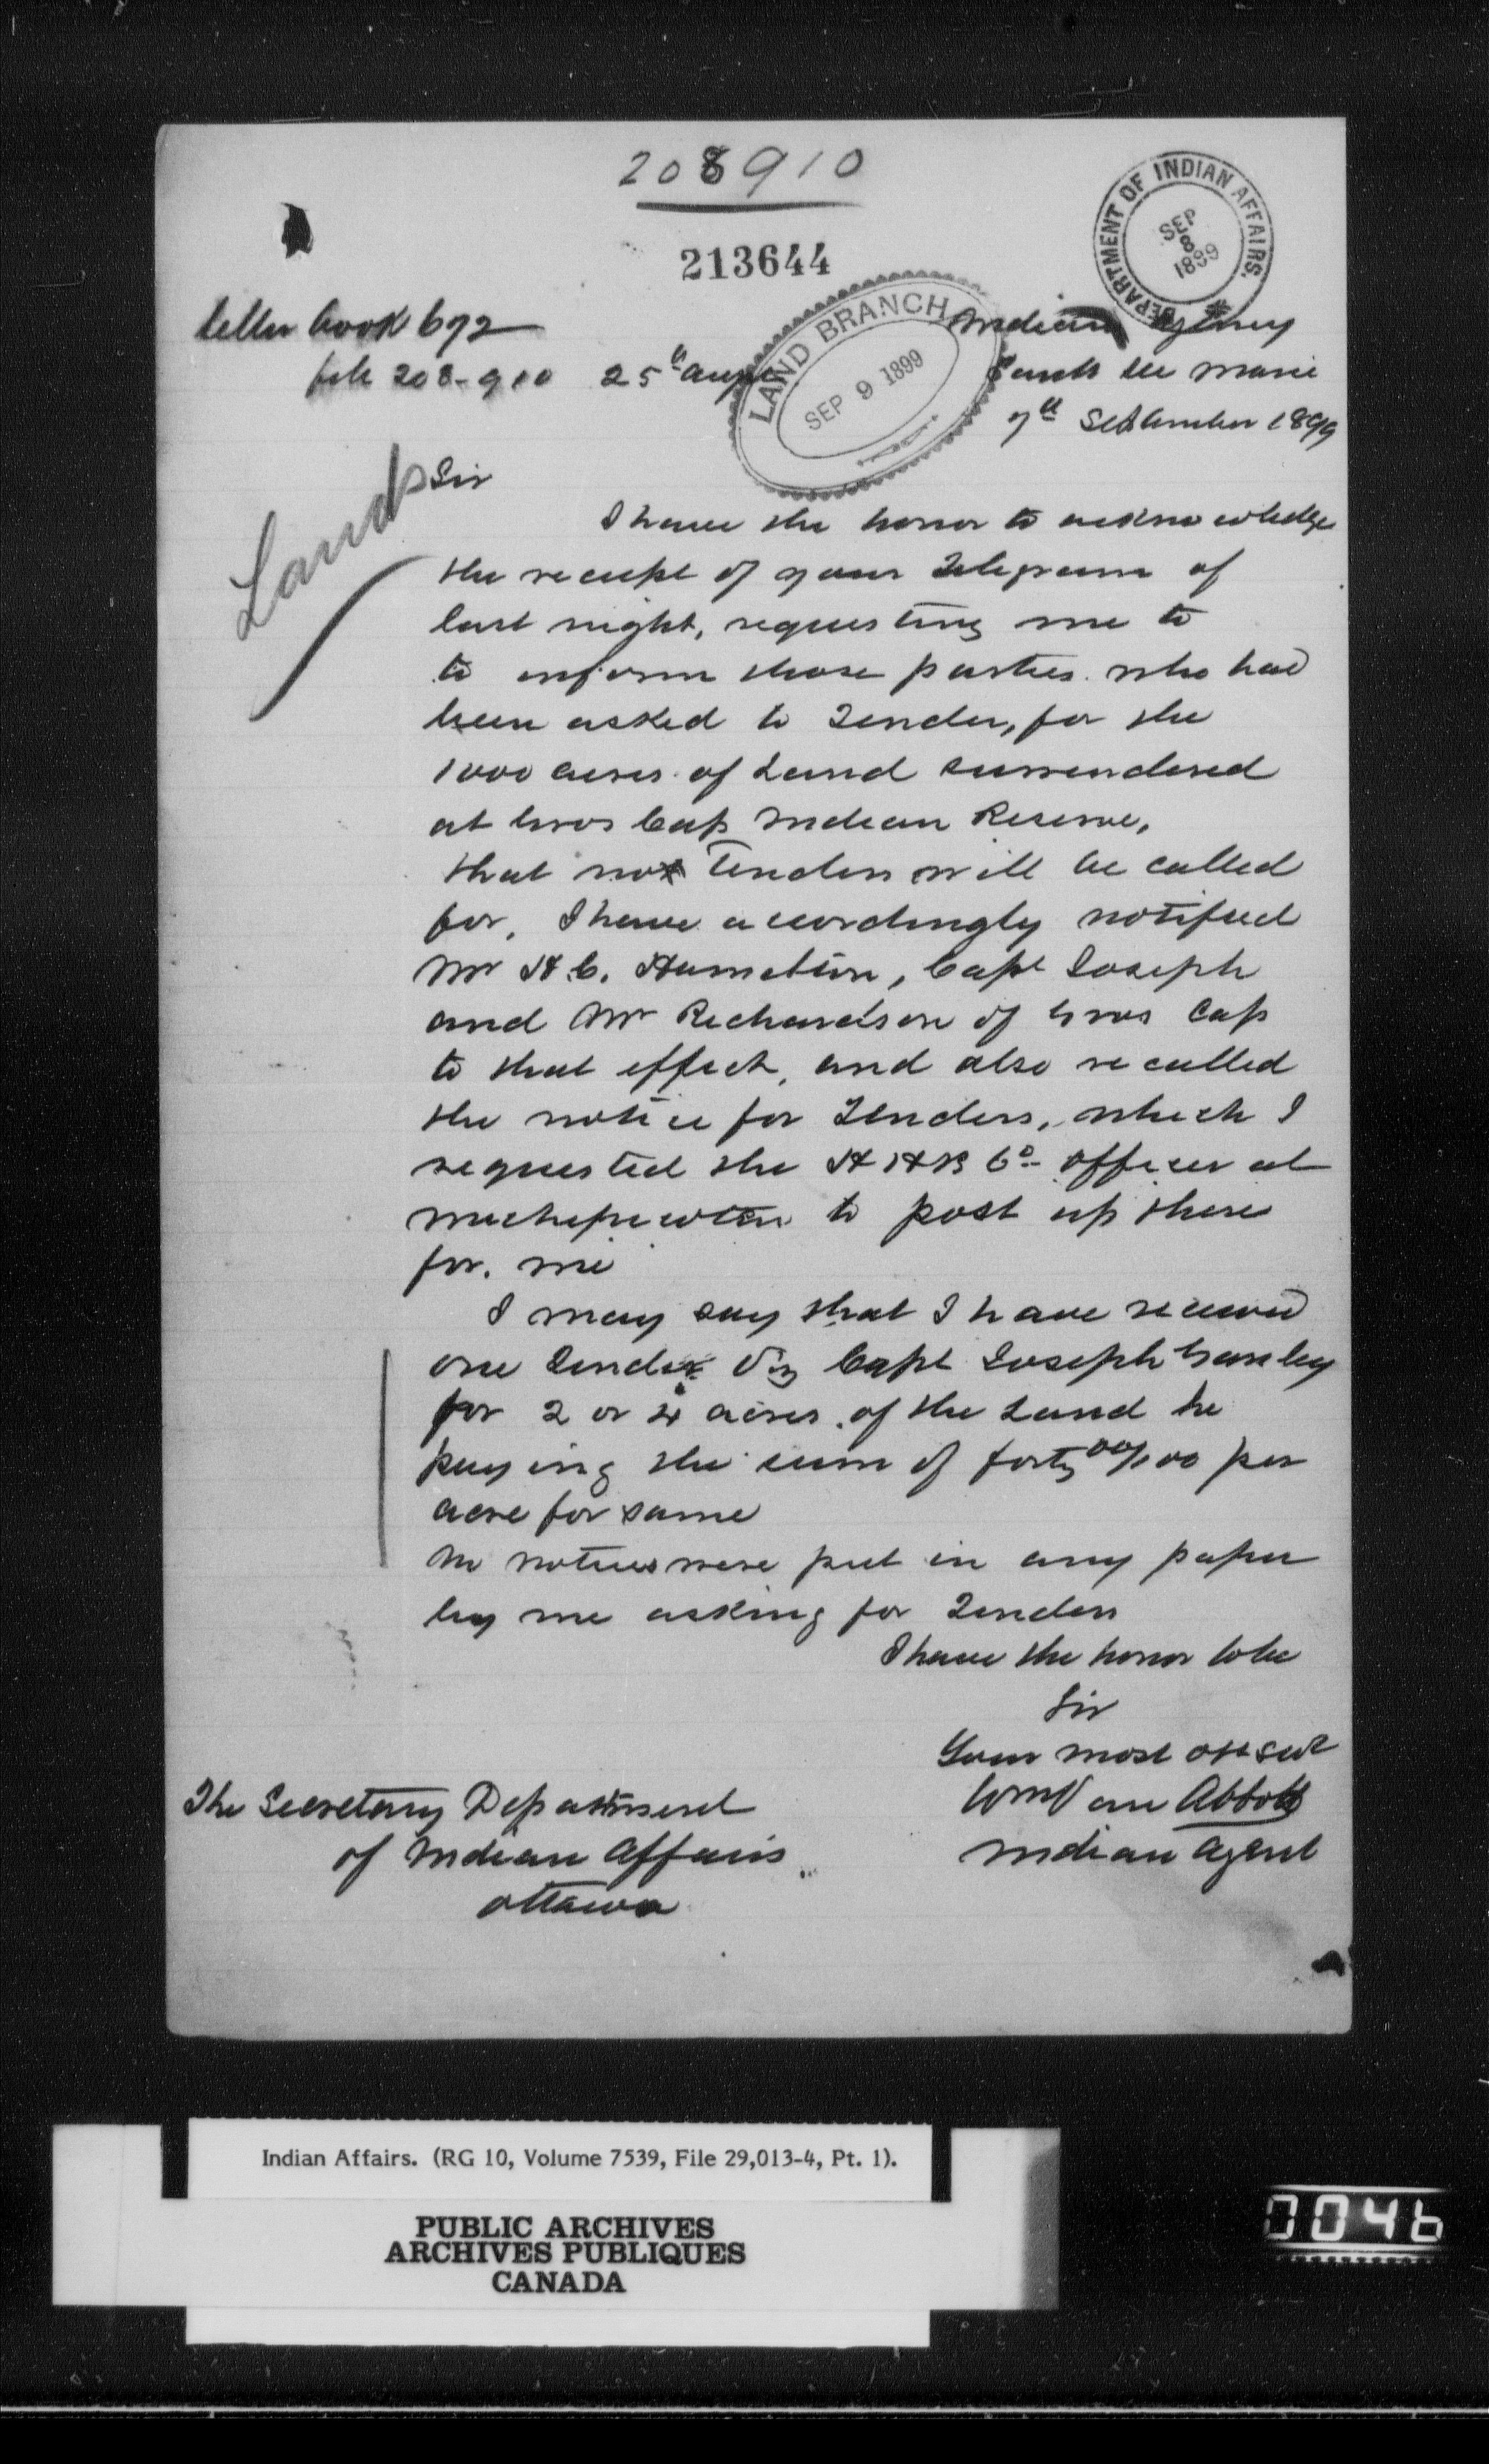 208910
213644
DEPARTMENT OF INDIAN AFFAIRS.
SEP
8
1899
LAND BRANCH
SEP 9 1899
Letter book 692
file 208-910 25th Augt
Indian Agency
Sault Ste Marie
7th September 1899
Lands
Sir
I have the honor to acknowledge
the receipt of your Telegram of
last night, requesting me to
to inform those parties who had
been asked to Tender, for the
1000 acres of Land surrendered
at Gros Cap Indian Reserve,
that no Tenders will be called
for, I have accordingly notified
Mr H.C. Hamilton, Capt Joseph
and Mr Richardson of Gros Cap
to that effect, and also recalled
the notice for Tenders, which I
requested the HHB Co- officer at
Michipicoten to post up there
for. me
I may say that I have received
one Tender Viz Capt Joseph Ganley
for 2 or 4 acres of the Land he
paying the sum of forty 00/100 per
acre for same
No notices were put in any paper
by me asking for Tenders
I have the honor to be
Sir
Your most obt Sert
Wm Van Abbott
Indian Agent
The Secretary Department
of Indian Affairs
Ottawa
Indian Affairs. (RG 10, Volume 7539, File 29,013-4, Pt. 1).
PUBLIC ARCHIVES
ARCHIVES PUBLIQUES
CANADA
0046